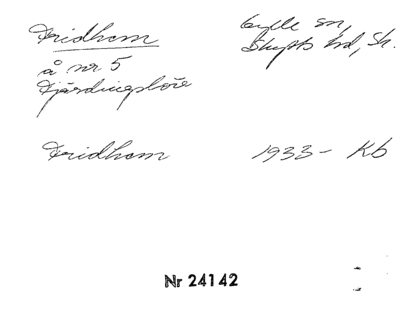 Fridhem
å nr 5
Fjärdingslöv
Gylle sn,
Skytts hd, Sk.
Fridhem 1933- Kb
Nr 24142